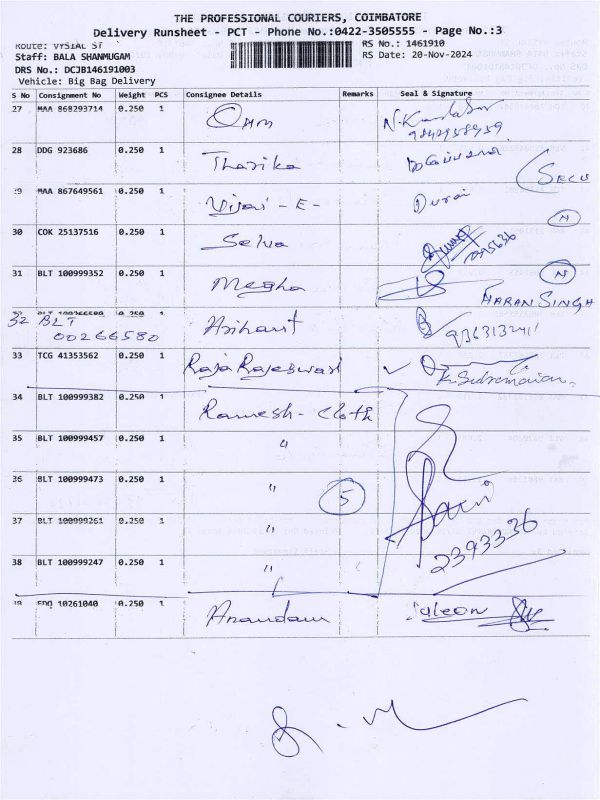 THE PROFESSIONAL COURIERS, COIMBATORE
Delivery Runsheet - PCT - Phone No.:0422-3505555 - Page No.:3
Route: VYSIAL ST
RS No.: 1461910
Staff: BALA SHANMUGAM
RS Date: 20-Nov-2024
DRS No.: DCJB146191003
Vehicle: Big Bag Delivery
S No Consignment No Weight PCS Consignee Details Remarks Seal & Signature
27 MAA 868293714 0.250 1
28 DDG 923686 0.250 1 Tharika
29 MAA 867649561 0.250 1 Vijai - E - Durai
N
30 COK 25137516 0.250 1 Selva
31 BLT 100999352 0.250 1 Megha N
HARAN SINGH
32 BLT 00266580 0.250 1 Arihant
33 TCG 41353562 0.250 1 Raja Rajeswari
34 BLT 100999382 0.250 1 Ramesh - Cloth
35 BLT 100999457 0.250 1 "
36 BLT 100999473 0.250 1 " 5
37 BLT 100999261 0.250 1 " 2393336
38 BLT 100999247 0.250 1 "
39 EDO 10261040 0.250 1 Anandam